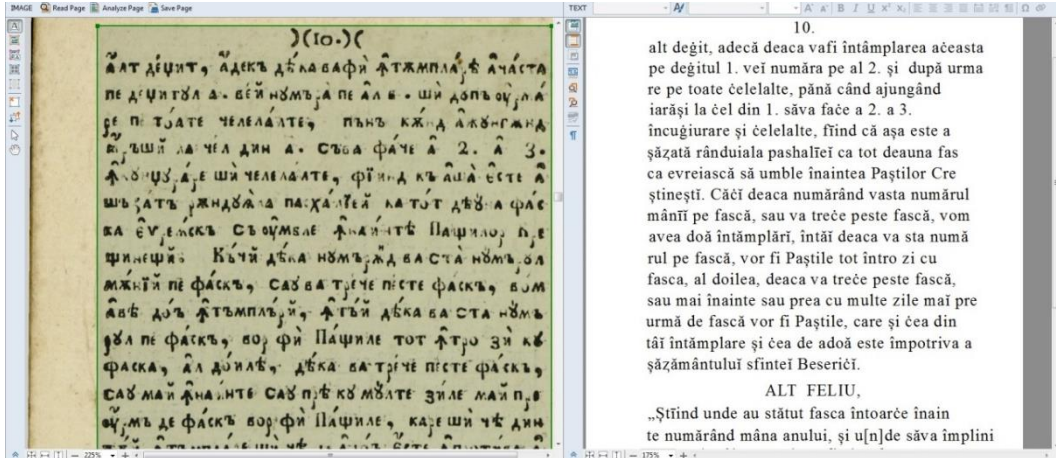 IMAGE Read Page Analyze Page Save Page
)(10.)(
а҆лт де́џит, а҆декъ дѣка вафи ꙟтѫмпларѣ а҆часта
пе деџитꙋл а. вей нꙋмъра пе ал в. ши дꙋпъ ᲂурма
ре пе тоате челелалте, пънъ кѫнд ажꙋнгѫнд
ла чел дин а. съва фаче а 2. а 3.
ши челелалте, фїинд къ аша есте а
шъзатъ рѫндꙋѧла пасхалїей ка тот дѣꙋна фас
ка евреѧскъ съ ᲂумбле ꙟнаинтѣ Пащилор кре
щинещи. Къчй дѣка нꙋмърѫд ва ста нꙋмърꙋл
мѫнїй пе фаскъ, саꙋ ва трече песте фаскъ, вом
авѣ доъ ꙟтѫмплърй, ꙟтѫй дѣка ва ста нꙋмъ
рꙋл пе фаскъ, вор фи Пащиле тот ꙟтро зи кꙋ
фаска, ал доилѣ, дѣка ва трече песте фаскъ,
саꙋ май ꙟнаинте саꙋ прѣ кꙋ мꙋлте зиле май пре
ᲂурмъ де фаскъ вор фи Пащиле, каре ши чѣ дин
225%
TEXT
10.
alt deġit, adecă deaca vafi întâmplarea aċeasta
pe deġitul 1. veĭ număra pe al 2. și după urma
re pe toate ċelelalte, pănă când ajungând
iarăși la ċel din 1. săva faċe a 2. a 3.
încuġiurare și ċelelalte, fīind că așa este a
șăzată rânduiala pashalīeĭ ca tot deauna fas
ca evreiască să umble înaintea Paștilor Cre
știneștĭ. Căċĭ deaca numărând vasta numărul
mânīĭ pe fască, sau va treċe peste fască, vom
avea doă întămplărĭ, întăĭ deaca va sta numă
rul pe fască, vor fi Paștile tot întro zi cu
fasca, al doilea, deaca va treċe peste fască,
sau mai înainte sau prea cu multe zile maĭ pre
urmă de fască vor fi Paștile, care și ċea din
tâĭ întâmplare și ċea de adoă este împotriva a
șăzământuluĭ sfinteĭ Beseriċĭ.
ALT FELIU,
„Știind unde au stătut fasca întoarċe înain
te numărând mâna anului, și u[n]de săva împlini
175%